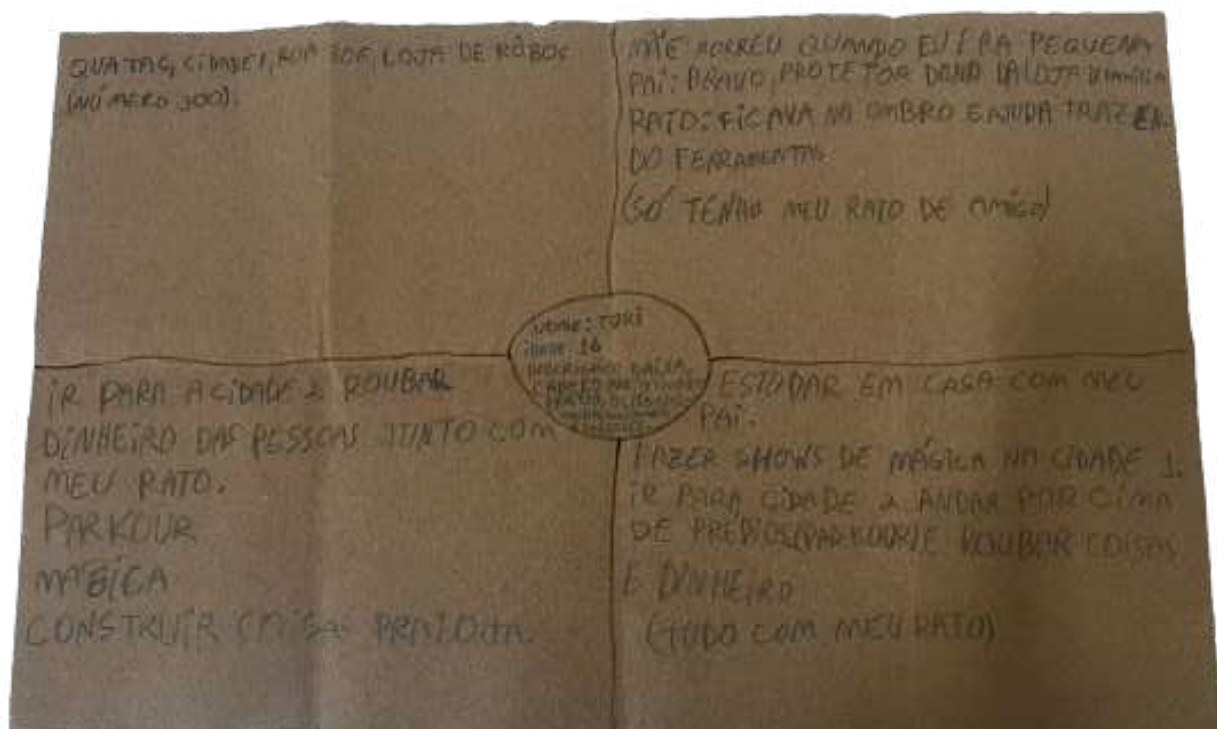 QUATAG, CIDADE 1, RUA 30E, LOJA DE RÔBOS
(NÚMERO 300).
MÃE MORREU QUANDO EU ERA PEQUENA
PAI: BRAVO, PROTETOR DONO DA LOJA
RATO: FICAVA NO OMBRO E AJUDA TRAZEN-
DO FERRAMENTAS
(SÓ TENHO MEU RATO DE AMIGO)
NOME: TORI
IDADE: 16
DESCRIÇÃO: BAIXA,
CABELO
IR PARA A CIDADE 2 ROUBAR
DINHEIRO DAS PESSOAS JUNTO COM
MEU RATO.
PARKOUR
MÁGICA
CONSTRUIR COISAS PRA LOJA.
ESTUDAR EM CASA COM MEU
PAI.
FAZER SHOWS DE MÁGICA NA CIDADE 1.
IR PARA CIDADE 2 ANDAR POR CIMA
DE PRÉDIOS (PARKOUR) E ROUBAR COISAS
E DINHEIRO
(TUDO COM MEU RATO)